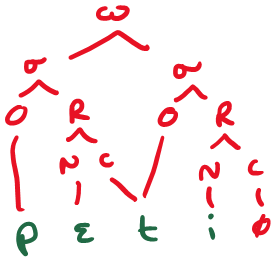 ω
σ σ
O R O R
N C N C
p ɛ t i ø